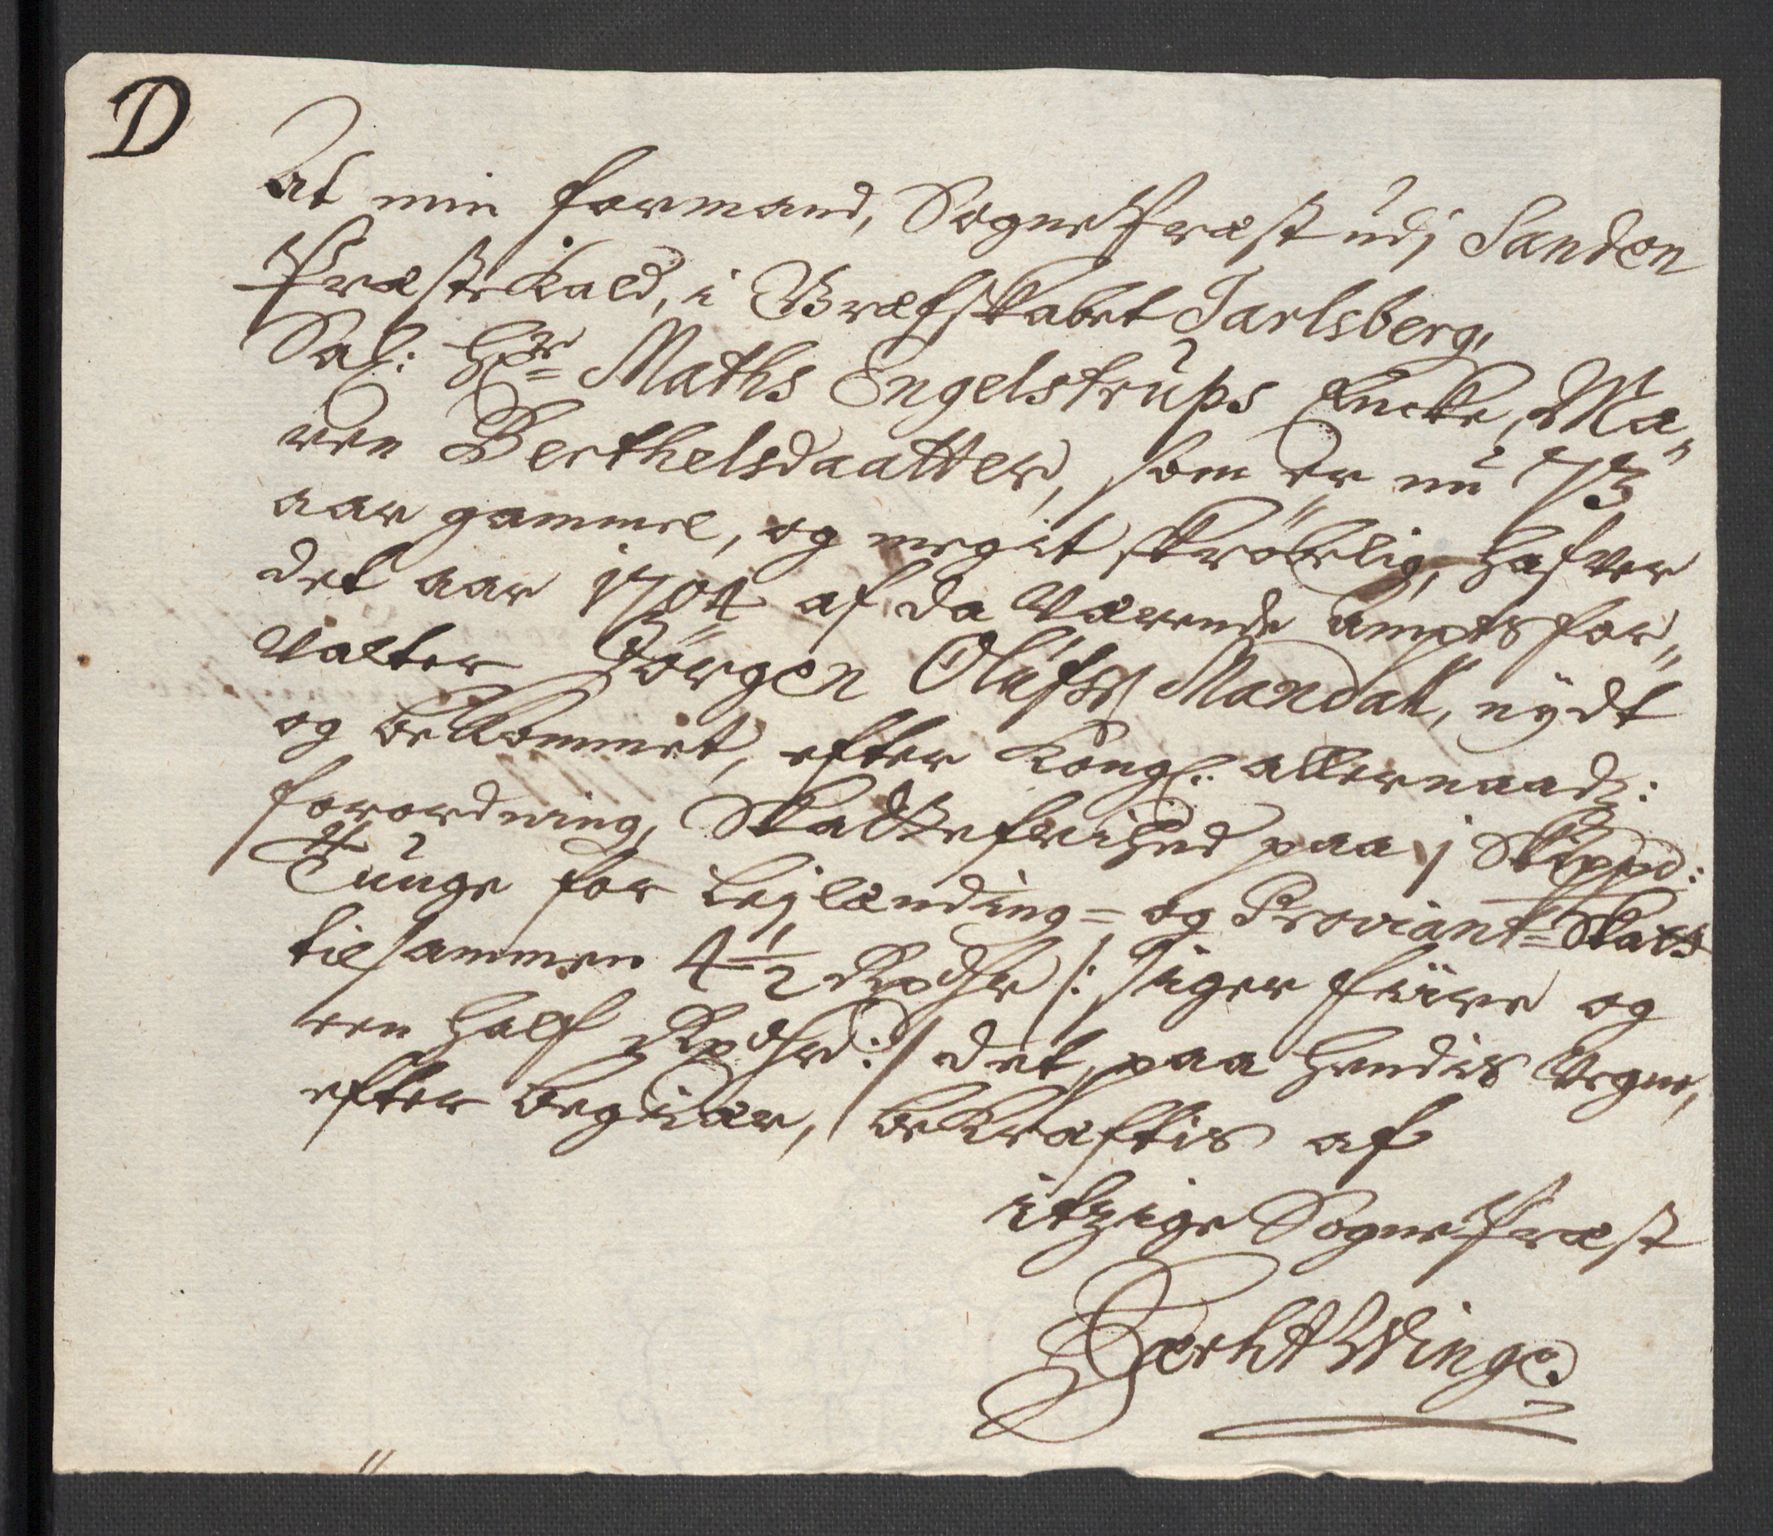 D
At min formand, Sogne Præst udj Sanden
Præste Kald, i Græfskabet Jarlsberg,
Sal: Hr Maths Engelstrups Encke, Ma„
ren Berthelsdaatter, som er nu 73
aar gammel, og megit skröbelig, hafver
det aar 1704 af da Værende Ampts for„
valter Jörgen Olufss Mandall, nydt
og bekommet, efter Kongl. allernaadz:
forordning, Skattefrihed paa j Skippd:
Tunge for Lejlænding= og Proviant=Skatt
tilsammen 4½ Rixdhr /: siger fiire og
een half Rixdhr :/ det, paa hendis Vegne,
efter begiær, bekræftis af
itzige Sogne Præst
Winge.